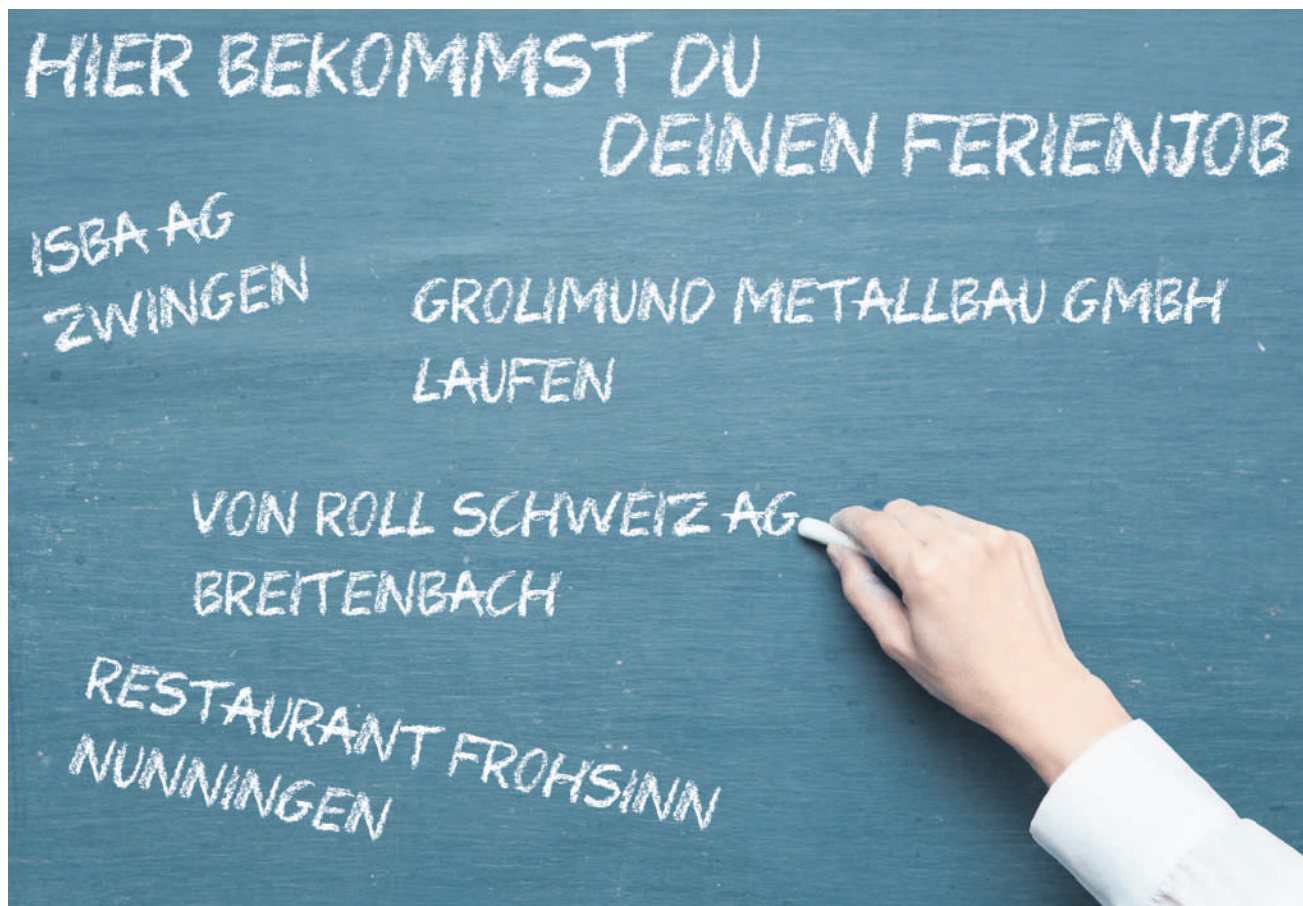 HIER BEKOMMST DU
DEINEN FERIENJOB
ISBA AG
ZWINGEN
GROLIMUND METALLBAU GMBH
LAUFEN
VON ROLL SCHWEIZ AG
BREITENBACH
RESTAURANT FROHSINN
NUNNINGEN